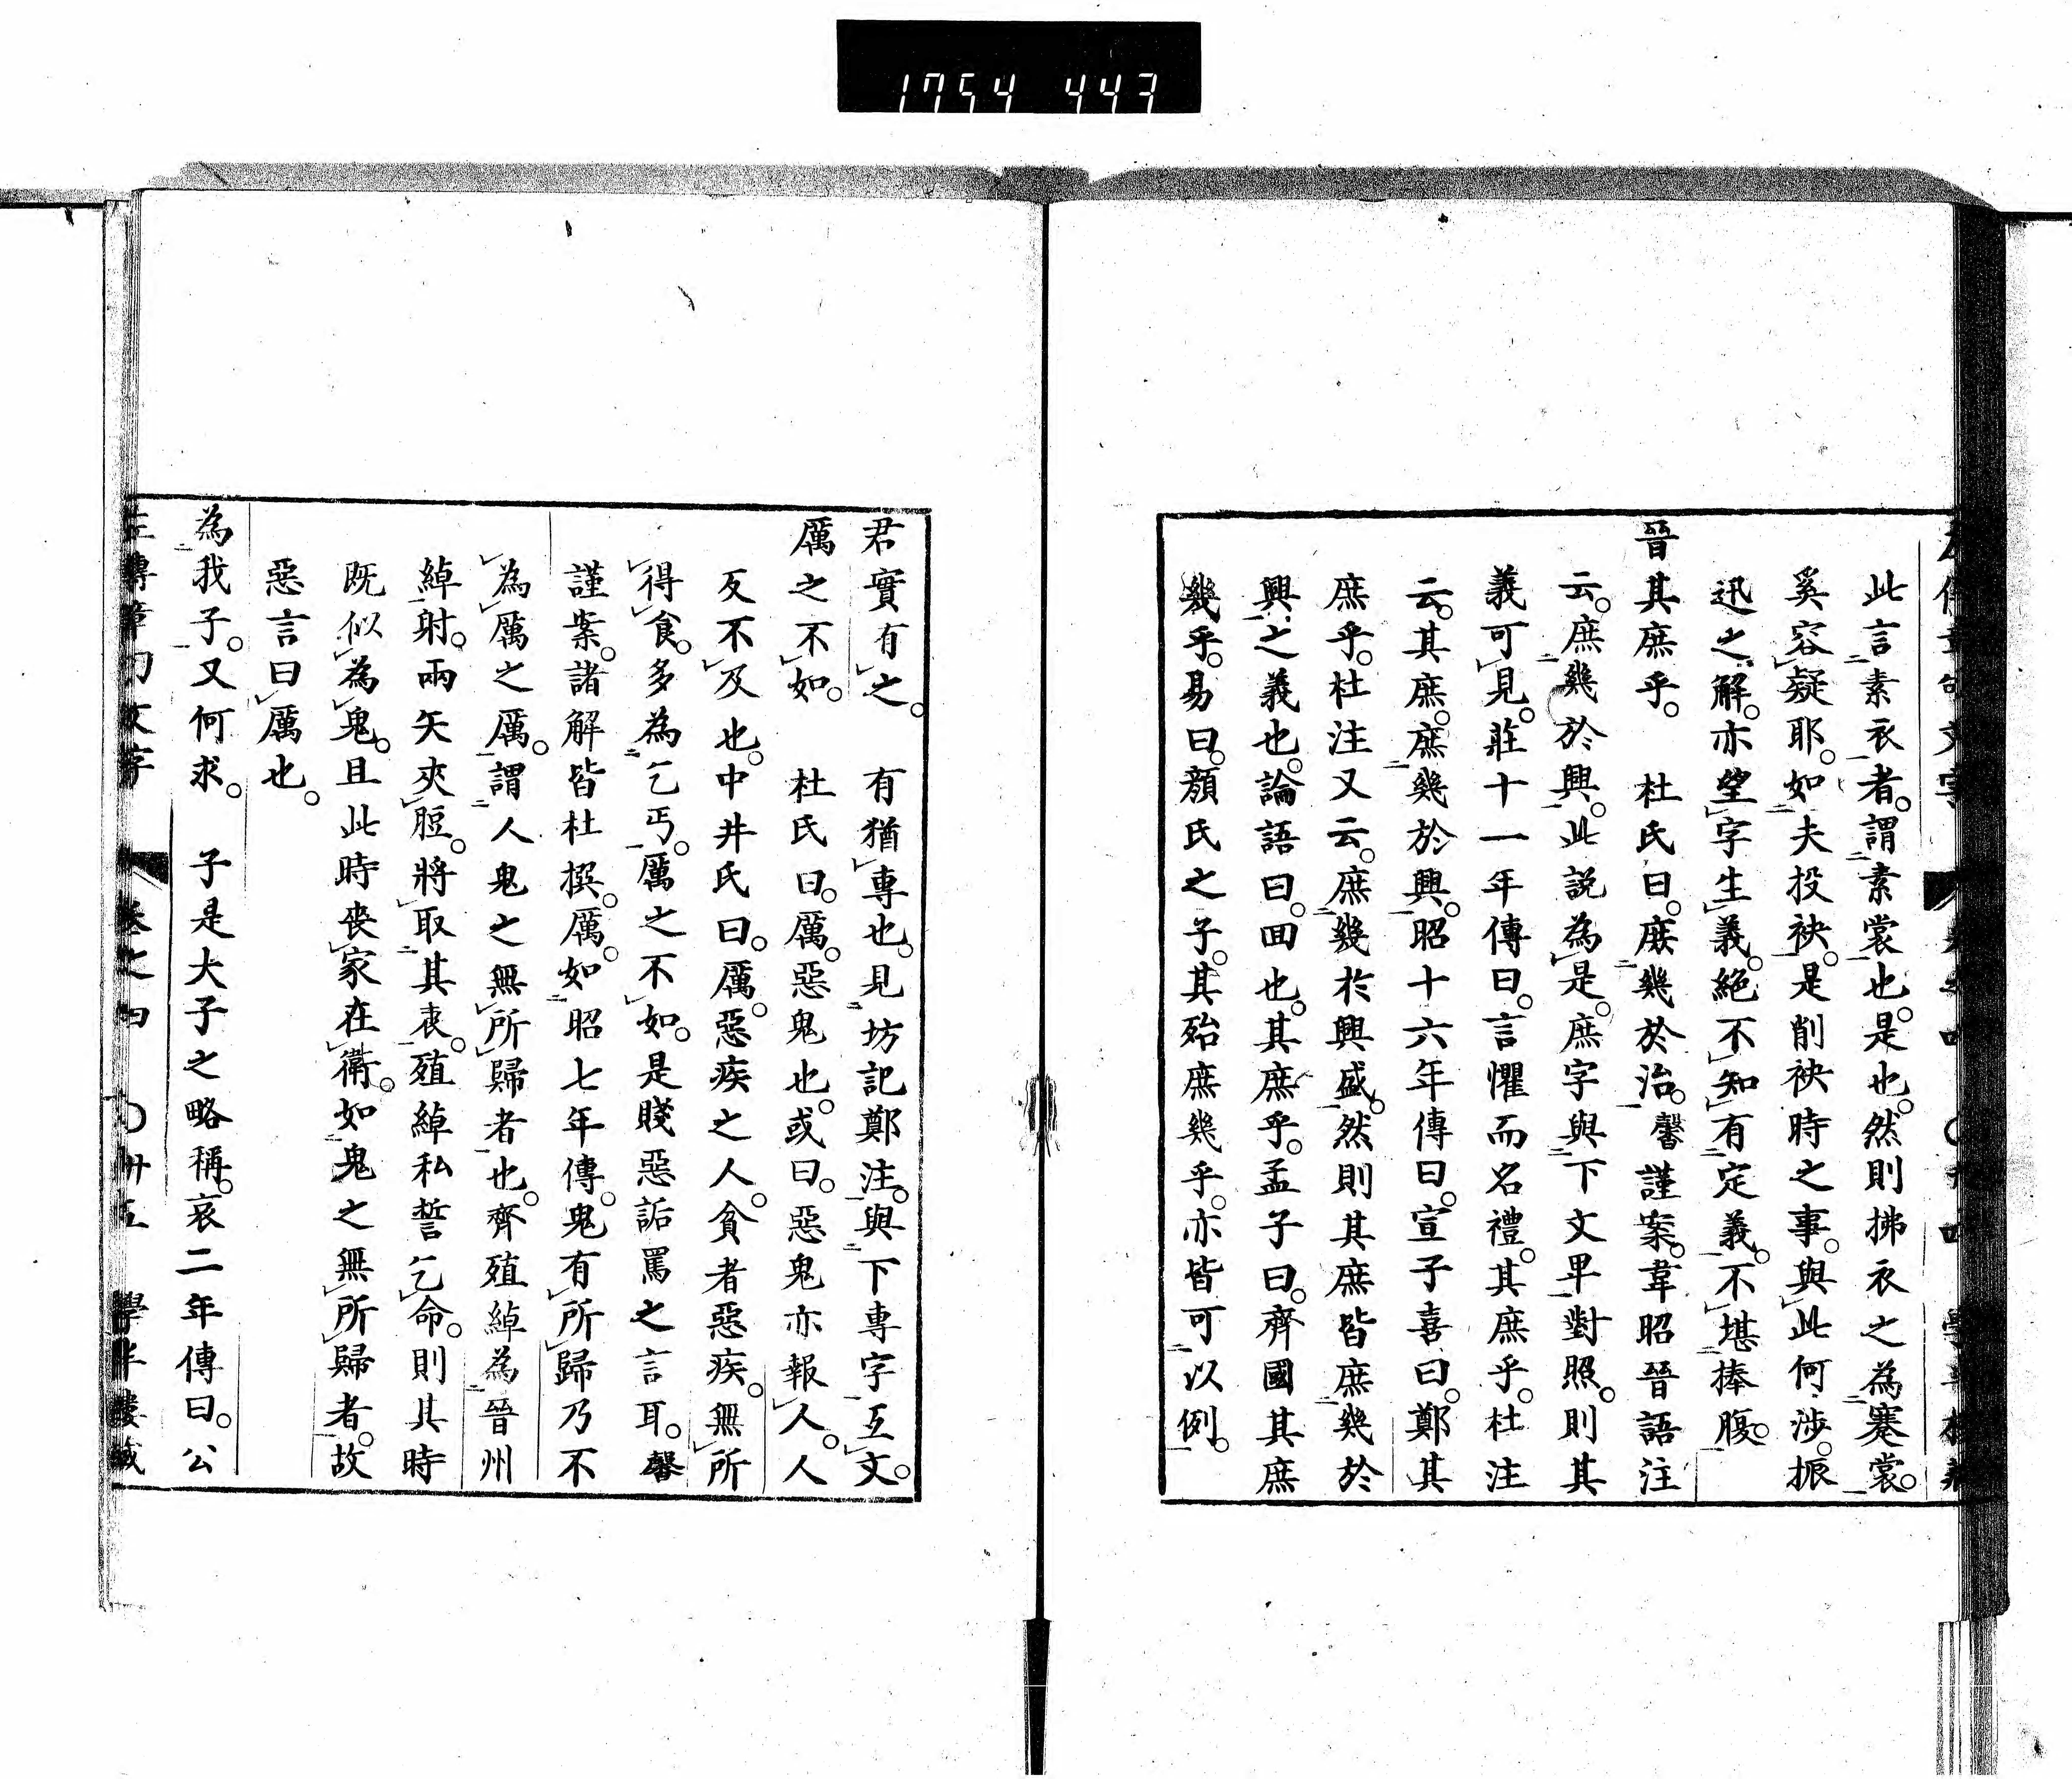 1754 443
此言素衣者。謂素裳也。是也。然則拂衣之為褰裳。
奚容疑耶。如夫投袂。是削袂時之事。與此何涉。振
迅之解。亦坐字生義。絕不知有定義。不堪捧腹。
晉其庶乎。 杜氏曰。庶幾於治。馨謹案。韋昭晉語注
云。庶幾於興。此説為是。庶字與下文卑對照。則其
義可見。莊十一年傳曰。言懼而名禮。其庶乎。杜注
云。其庶。庶幾於興。昭十六年傳曰。宣子喜曰。鄭其
庶乎。杜注又云。庶幾於興盛。然則其庶皆庶幾於
興之義也。論語曰。回也。其庶乎。孟子曰。齊國其庶
幾乎。易曰。顏氏之子。其殆庶幾乎。亦皆可以例。
君實有之。 有猶專也。見坊記鄭注。與下專字互文。
厲之不如。 杜氏曰。厲。惡鬼也。或曰。惡鬼亦報人。人
反不及也。中井氏曰。厲。惡疾之人。貧者惡疾。無所
得食。多為乞丐。厲之不如。是賤惡詬罵之言耳。馨
謹案。諸解皆杜撰。厲。如昭七年傳。鬼有所歸乃不
為厲之厲。謂人鬼之無所歸者也。齊殖綽為晉州
綽射。兩矢夾脰。將取其衷。殖綽私誓乞命。則其時
既似為鬼。且此時喪家在衛。如鬼之無所歸者。故
惡言曰厲也。
為我子。又何求。 子是大子之略稱。哀二年傳曰。公
左傳章句文字 卷之四 〇卅五 學半樓藏